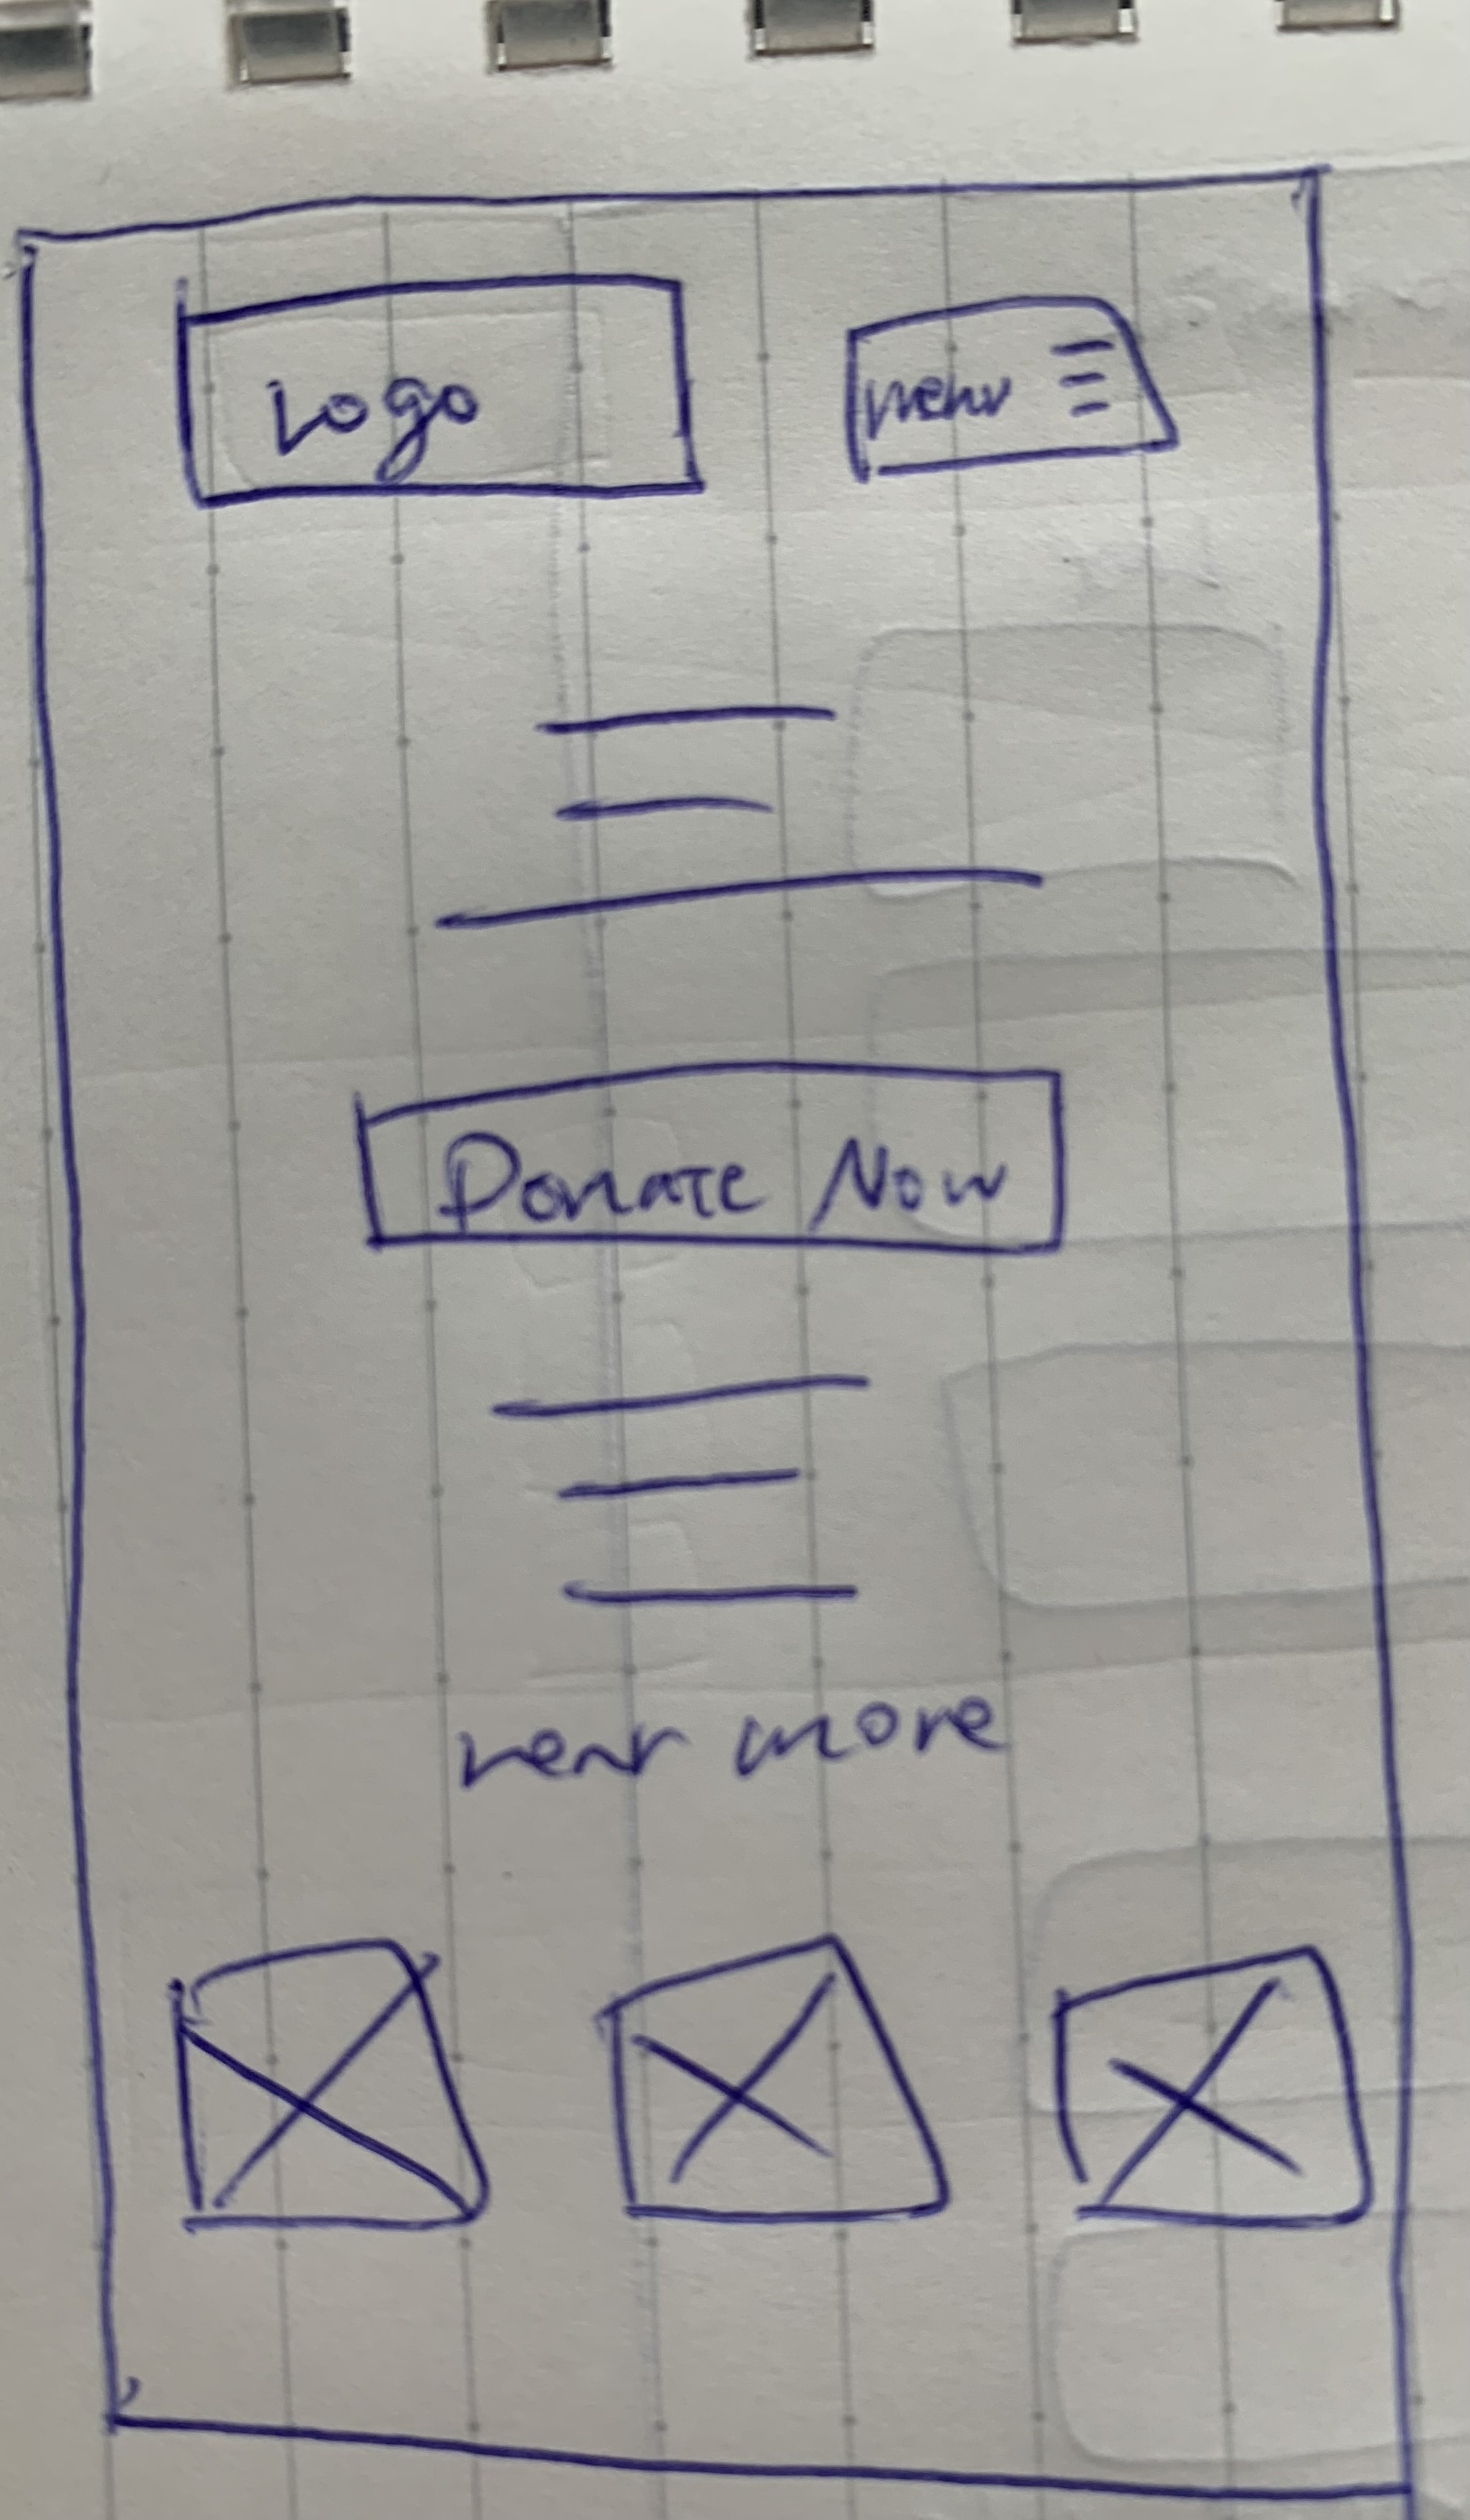 Logo
menu
Donate Now
more